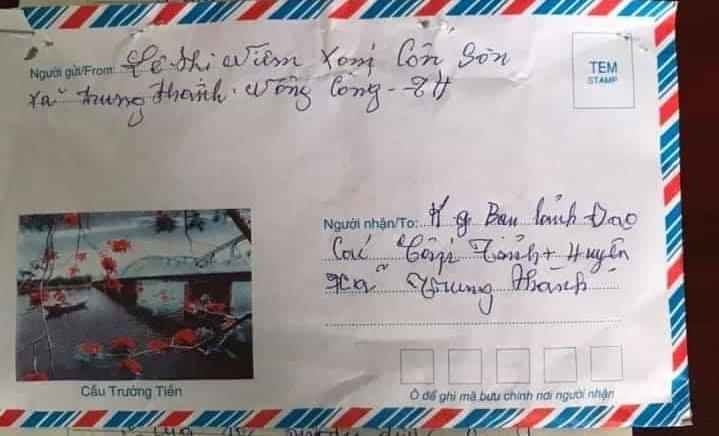 Người gửi/From: Lê thi Niêm Xóm Côn Sơn
Xã Trung thành. Nông Cống - TH
TEM
STAMP
Người nhận/To: K g Ban lãnh Đạo
Các Cấp Tỉnh + Huyện
Xã Trung thành
Cầu Trường Tiền
Ô để ghi mã bưu chính nơi người nhận